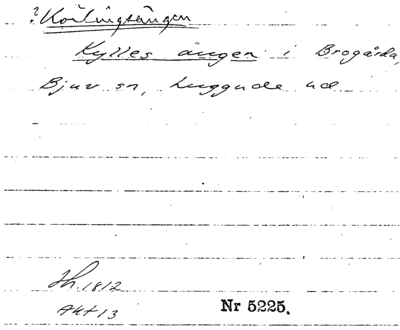 ? Körlingsängen
Kylles ängen i Brogårda,
Bjuv sn, Luggude hd
Jh. 1812
Akt 13
Nr 5225.